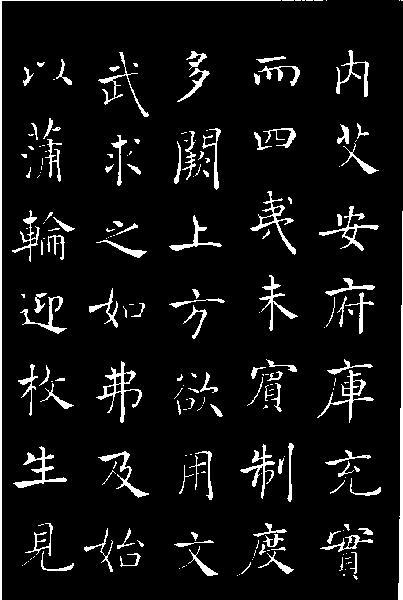 内艾安府庫充實
而四夷未賓制度
多闕上方欲用文
武求之如弗及始
以蒲輪迎枚生見